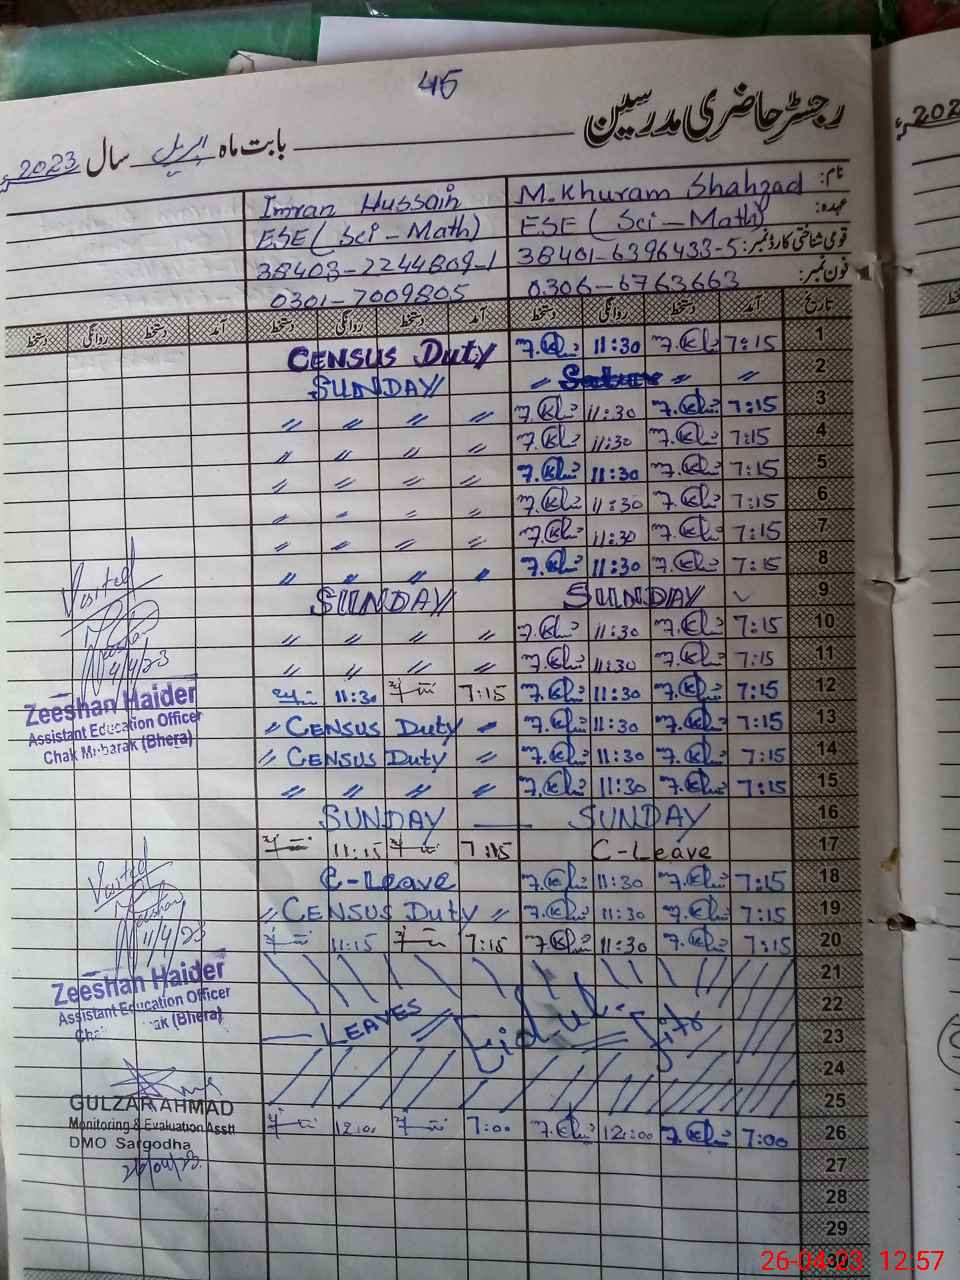 45
رجسٹر حاضری مدرسین
بابت ماہ اپریل سال 2023ء
نام: M. Khuram Shahzad Imran Hussain
عہدہ: ESE (Sci - Math) ESE (Sci - Math)
قومی شناختی کارڈ نمبر: 38401-6396433-5 38403-2244809-1
فون نمبر: 0306-6763663 0301-7009805
تاریخ آمد دستخط روانگی دستخط آمد دستخط روانگی دستخط آمد دستخط روانگی دستخط
1 7:15 11:30 CENSUS Duty
2 〃 〃 SUNDAY
3 7:15 11:30 〃 〃 〃 〃
4 7:15 11:30 〃 〃 〃 〃
5 7:15 11:30 〃 〃 〃 〃
6 7:15 11:30 〃 〃 〃 〃
7 7:15 11:30 〃 〃 〃 〃
8 7:15 11:30 〃 〃 〃 〃
9 SUNDAY SUNDAY
10 7:15 11:30 〃 〃 〃 〃
11 7:15 11:30 〃 〃 〃 〃
12 7:15 11:30 7:15 11:30
13 7:15 11:30 〃 CENSUS Duty 〃
14 7:15 11:30 〃 CENSUS Duty 〃
15 7:15 11:30 〃 〃 〃 〃
16 SUNDAY — SUNDAY
17 C-Leave 7:15 11:15
18 7:15 11:30 C-Leave
19 7:15 11:30 〃 CENSUS Duty 〃
20 7:15 11:30 7:15 11:15
21
22
23 LEAVES Eid ul - Fitr
24
25
26 7:00 12:00 7:00 12:00
27
28
29
30
Visited
4/4/23
Zeeshan Haider
Assistant Education Officer
Chak Mubarak (Bhera)
Visited
11/4/23
Zeeshan Haider
Assistant Education Officer
(Bhera)
GULZAR AHMAD
Monitoring & Evaluation Asstt
DMO Sargodha
26/04/23
2023ء
26-04-23 12:57